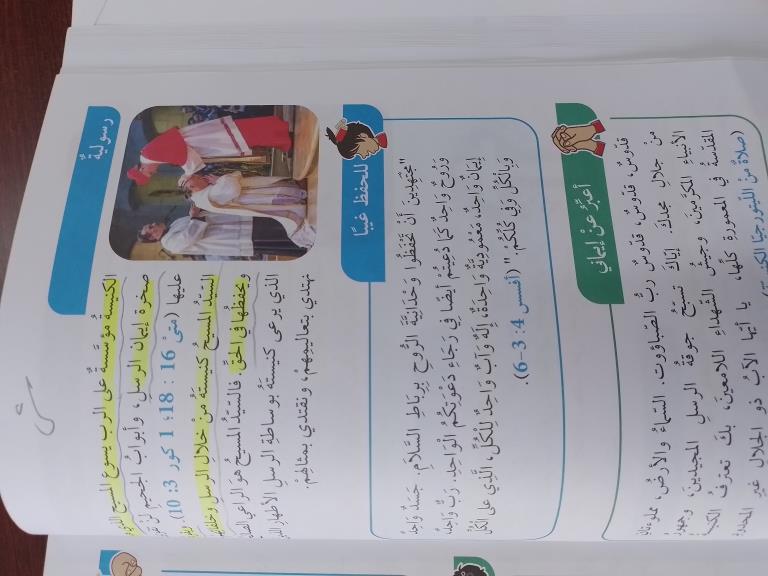 رسوليةٌ
الكنيسةُ مؤسَّسةٌ على الربِّ يسوعَ المسيحِ
صخرةِ إيمانِ الرسلِ، وأبوابُ الجحيمِ لن
عليها (متى 16: 18؛ 1 كور 3: 10).
السيِّدُ المسيحُ كنيستَهُ منْ خلالِ الرسلِ
ويحفظُها في الحقِّ. فالسيِّدُ المسيحُ هوَ الراعي
الذي يرعى كنيستَهُ بوساطةِ الرسلِ الأطهارِ
نهتدي بتعاليمِهِمْ، ونقتدي بمثالِهِمْ.
للحفظِ غيبًا
"مجتهِدينَ أنْ تحفَظُوا وَحْدانيَّةَ الرُّوحِ بِرِباطِ السَّلامِ. جَسَدٌ واحِدٌ
وَرُوحٌ واحِدٌ كَما دُعِيتُمْ أيضًا في رَجاءِ دَعْوَتِكُمُ الواحِدِ. رَبٌّ واحِدٌ
إيمانٌ واحِدٌ، مَعْمُودِيَّةٌ واحِدَةٌ، إلَهٌ وَآبٌ واحِدٌ لِلْكُلِّ، الَّذي على الكُلِّ
وَبِالْكُلِّ وَفي كُلِّكُمْ." (أفسس 4: 3-6).
أعبِّرُ عنْ إيماني
قدّوسٌ، قدّوسٌ، قدّوسٌ ربُّ الصَّباؤوت. السَّماءُ والأرضُ مملوءتانِ
منْ جلالِ مجدِكَ. إيّاكَ تسبِّحُ جوقةُ الرسلِ المجيدينَ،
الأنبياءِ المكرَّمينَ، وجيشُ الشهداءِ اللامعينَ، بكَ تعترفُ
المقدَّسةُ في المعمورةِ كلِّها، يا أيُّها الآبُ ذو الجلالِ غيرِ
(صلاةٌ منَ الليتورجيّا